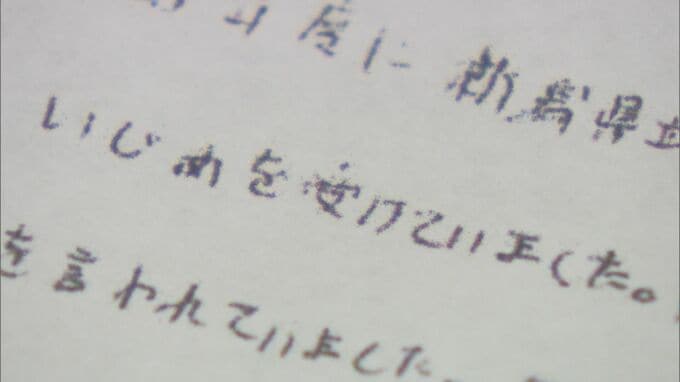 4度に新潟県立
いじめを受けていました。
を言われていました